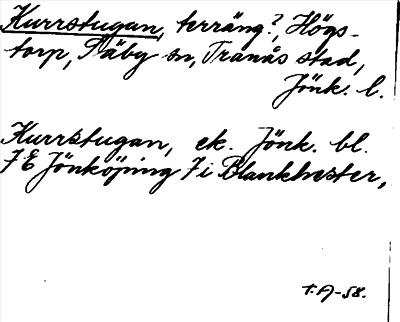 Kurrstugan, terräng?, Högs-
torp, Säby sn, Tranås stad,
Jönk. l.
Kurrstugan, ek. Jönk. bl.
7 E Jönköping 7 i Blankhester,
T.A-58.